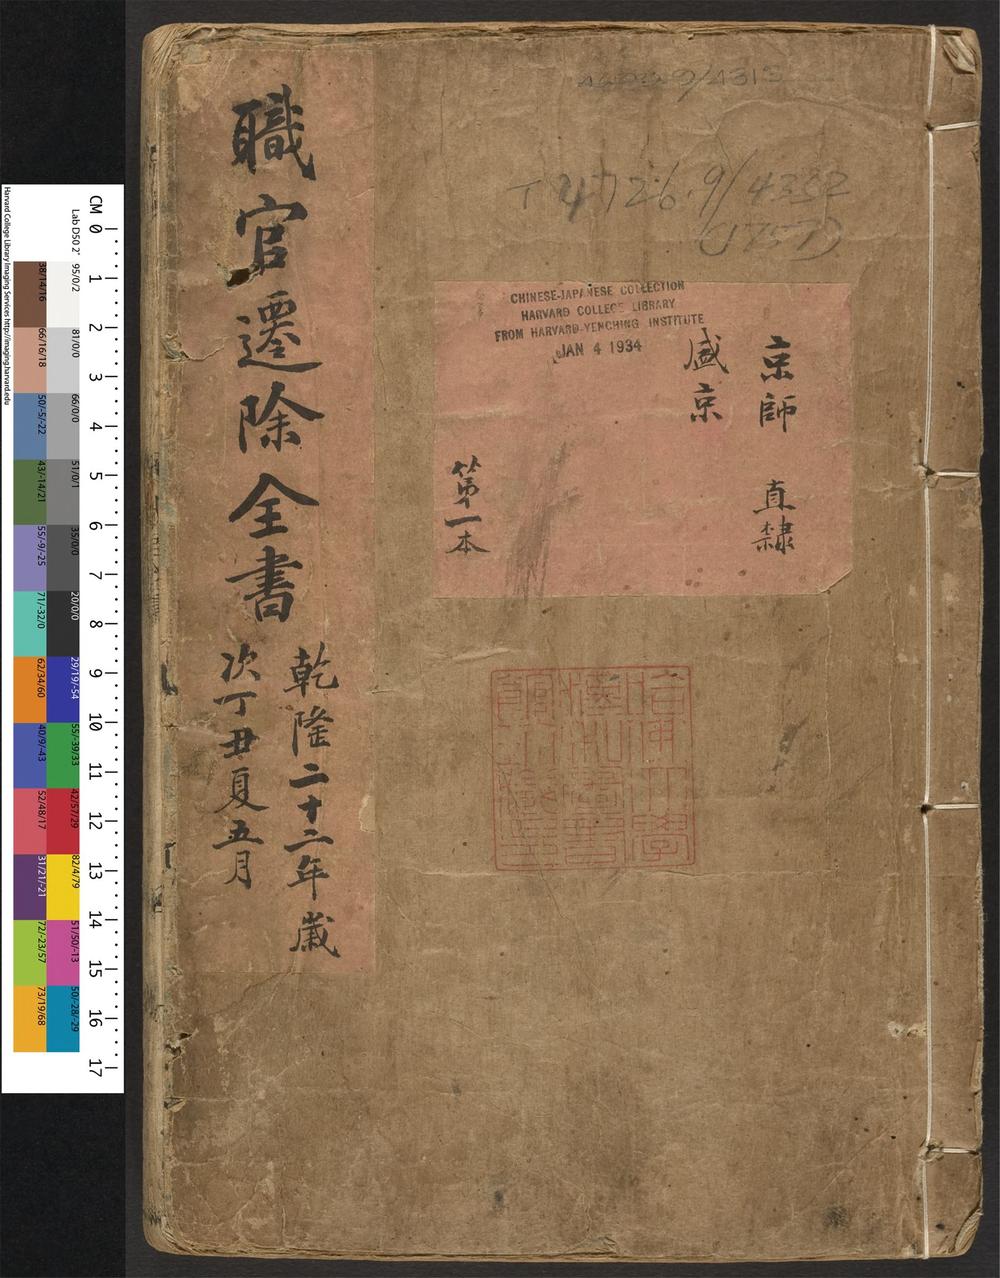 職官遷除全書
乾隆二十二年歲
次丁丑夏五月
京師 直隸
盛京
第一本
CHINESE-JAPANESE COLLECTION
HARVARD COLLEGE LIBRARY
FROM HARVARD-YENCHING INSTITUTE
JAN 4 1934
T 4726.9/4332
(1757)
哈佛大學漢和圖書館珍藏印
Harvard College Library Imaging Services http://imaging.harvard.edu
Lab D50 2°
CM 0 1 2 3 4 5 6 7 8 9 10 11 12 13 14 15 16 17
95/0/2
81/0/0
66/0/0
51/0/1
35/0/0
20/0/0
29/19/-54
55/-39/33
42/57/29
82/4/79
51/50/-13
50/-28/-29
38/14/16
66/16/18
50/-5/-22
43/-14/21
55/-9/-25
71/-32/0
62/34/60
40/9/-43
52/48/17
31/21/-21
72/-23/57
73/19/68